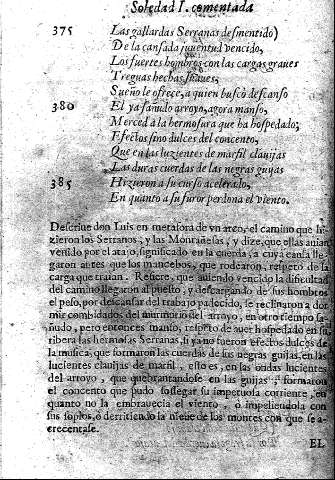 Soledad I. comentada
375 Las gallardas Serranas desmentido)
De la cansada juventud vencido,
Los fuertes hombros con las cargas graves
Treguas hechas suaves,
Sueño le ofrece, a quien buscò descanso
380 El ya sañudo arroyo, agora manso,
Merced a la hermosura que ha hospedado,
Efectos sino dulces del concento,
Que en las luzientes de marfil clauijas
Las duras cuerdas de las negras guijas
385 Hizieron a su curso acelerado,
En quanto a su furor perdona el viento.
Descriue don Luis en metafora de vn arco, el camino que hi-
zieron los Serranos, y las Montañesas, y dize, que ellas auian
venido por el atajo, significado en la cuerda, a cuya causa lle-
garon antes que los mancebos, que rodearon, respeto de la
carga que traian. Refiere, que auiendo vencido la dificultad
del camino llegaron al puesto, y descargando de sus hombros
el peso, por descansar del trabajo padecido, se reclinaron a dor
mir combidados del murmurio del arroyo, en otro tiempo sa-
ñudo, pero entonces manso, respeto de auer hospedado en su
ribera las hermosas Serranas, si ya no fueron efectos dulces de
la musica, que formaron las cuerdas de sus negras guijas, en las
lucientes clauijas de marfil, esto es, en las ondas lucientes
del arroyo, que quebrantandose en las guijas, formaron
el concento que pudo sossegar su impetuosa corriente, en
quanto no la embrauecia el viento, o impeliendola con
sus soplos, ò derritiendo la nieue de los montes con que se a-
crecentasse.
EL